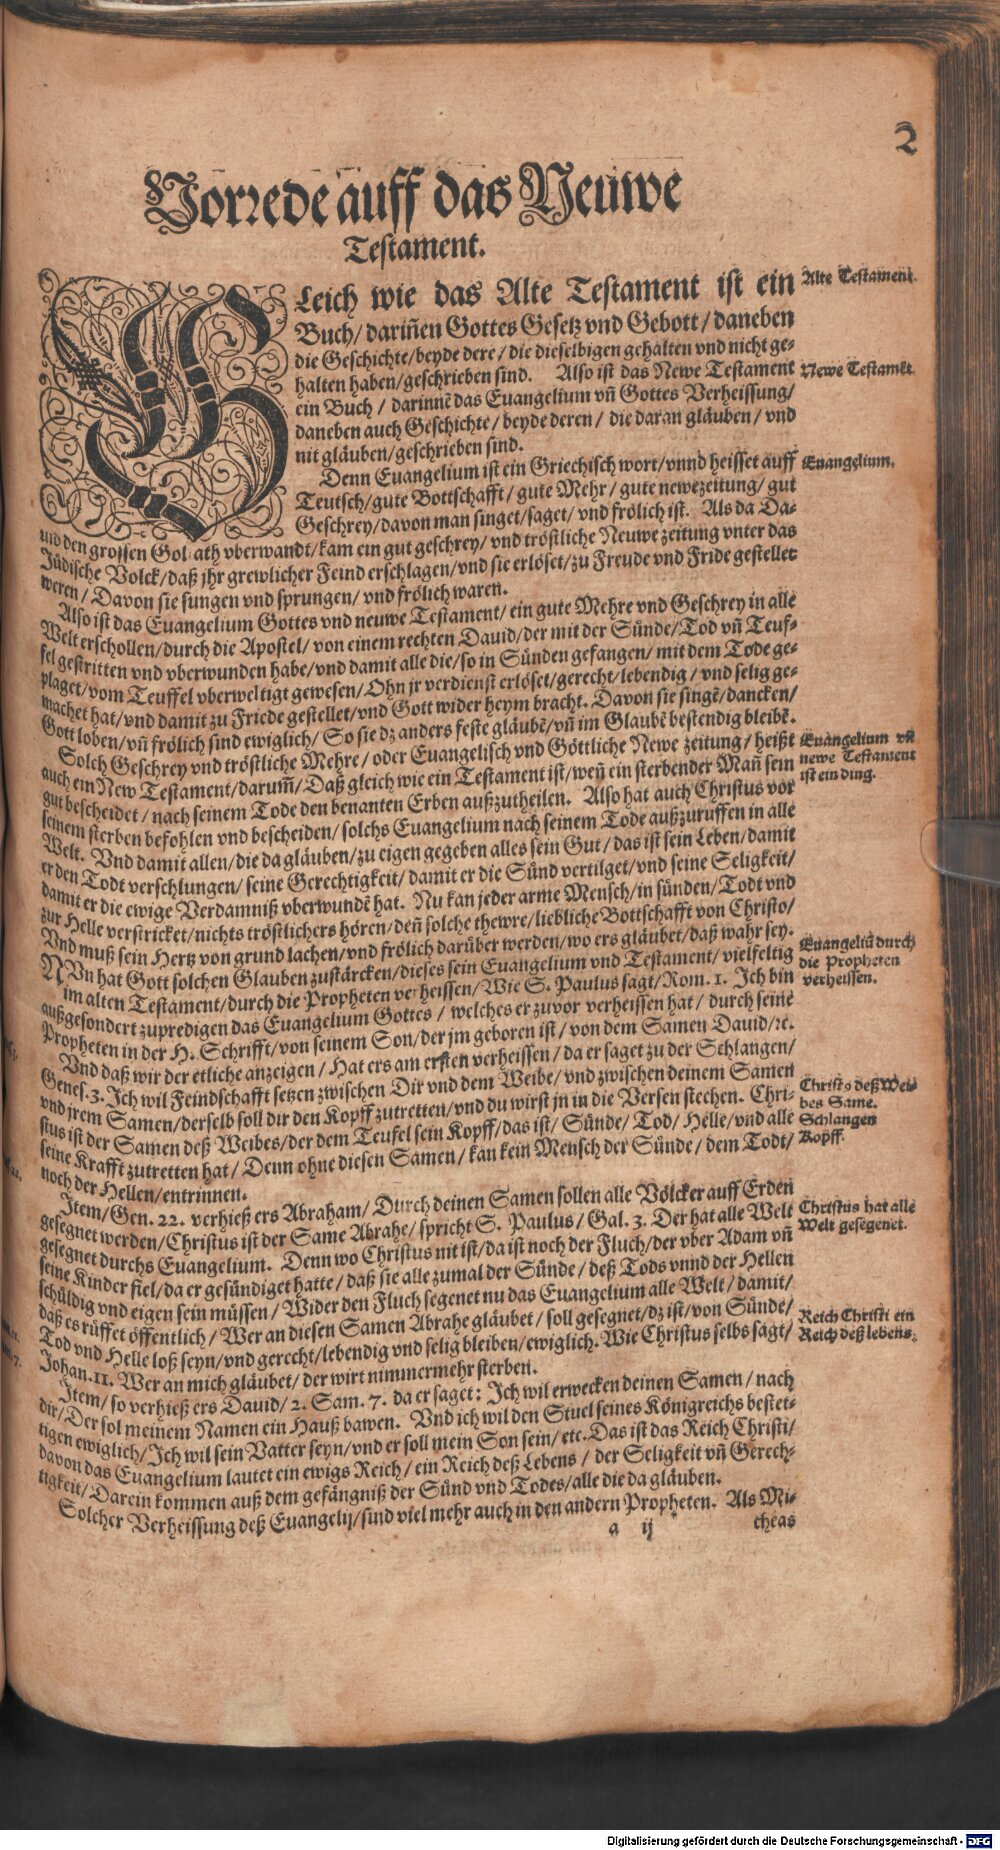 2
Vorrede auff das Neuwe
Testament.
GLeich wie das Alte Testament ist ein
Buch / dariñen Gottes Gesetz vnd Gebott / daneben
die Geschichte / beyde dere / die dieselbigen gehalten vnd nicht ge-
halten haben / geschrieben sind. Also ist das Newe Testament
ein Buch / darinnē das Euangelium vñ Gottes Verheissung /
daneben auch Geschichte / beyde deren / die daran gläuben / vnd
nit gläuben / geschrieben sind.
Denn Euangelium ist ein Griechisch wort / vnnd heisset auff
Teutsch / gute Bottschafft / gute Mehr / gute newezeitung / gut
Geschrey / davon man singet / saget / vnd frölich ist. Als da Da-
uid den grossen Goliath vberwandt / kam ein gut geschrey / vnd tröstliche Neuwe zeitung vnter das
Jüdische Volck / daß jhr grewlicher Feind erschlagen / vnd sie erlöset / zu Freude vnd Fride gestellet
weren / Davon sie sungen vnd sprungen / vnd frölich waren.
Also ist das Euangelium Gottes vnd neuwe Testament / ein gute Mehre vnd Geschrey in alle
Welt erschollen / durch die Apostel / von einem rechten David / der mit der Sünde / Tod vñ Teuf-
fel gestritten vnd vberwunden habe / vnd damit alle die / so in Sünden gefangen / mit dem Tode ge-
plaget / vom Teuffel vberweltigt gewesen / Ohn jr verdienst erlöset / gerecht / lebendig / vnd selig ge-
machet hat / vnd damit zu Friede gestellet / vnd Gott wider heym bracht. Davon sie singē / dancken /
Gott loben / vñ frölich sind ewiglich / So sie dz anders feste gläubē / vñ im Glaubē bestendig bleibē.
Solch Geschrey vnd tröstliche Mehre / oder Euangelisch vnd Göttliche Newe zeitung / heißt
auch ein New Testament / darum̃ / Daß gleich wie ein Testament ist / weñ ein sterbender Mañ sein
gut bescheidet / nach seinem Tode den benanten Erben außzutheilen. Also hat auch Christus vor
seinem sterben befohlen vnd bescheiden / solchs Euangelium nach seinem Tode außzuruffen in alle
Welt. Vnd damit allen / die da gläuben / zu eigen gegeben alles sein Gut / das ist sein Leben / damit
er den Todt verschlungen / seine Gerechtigkeit / damit er die Sünd vertilget / vnd seine Seligkeit /
damit er die ewige Verdamniß vberwundē hat. Nu kan jeder arme Mensch / in sünden / Todt vnd
zur Helle verstricket / nichts tröstlichers hören / deñ solche thewre / liebliche Bottschafft von Christo /
Vnd muß sein Hertz von grund lachen / vnd frölich darüber werden / wo ers gläubet / daß wahr sey.
NVn hat Gott solchen Glauben zustärcken / dieses sein Euangelium vnd Testament / vielfeltig
im alten Testament / durch die Propheten verheissen / Wie S. Paulus sagt / Rom. 1. Ich bin
außgesondert zupredigen das Euangelium Gottes / welches er zuvor verheissen hat / durch seine
Propheten in der H. Schrifft / von seinem Son / der jm geboren ist / von dem Samen David / ꝛc.
Vnd daß wir der etliche anzeigen / Hat ers am ersten verheissen / da er saget zu der Schlangen /
Genes. 3. Ich wil Feindschafft setzen zwischen Dir vnd dem Weibe / vnd zwischen deinem Samen
vnd jrem Samen / derselb soll dir den Kopff zutretten / vnd du wirst jn in die Versen stechen. Chri-
stus ist der Samen deß Weibes / der dem Teufel sein Kopff / das ist / Sünde / Tod / Helle / vnd alle
seine Krafft zutretten hat / Denn ohne diesen Samen / kan kein Mensch der Sünde / dem Todt /
noch der Hellen / entrinnen.
Item / Gen. 22. verhieß ers Abraham / Durch deinen Samen sollen alle Völcker auff Erden
gesegnet werden / Christus ist der Same Abrahe / spricht S. Paulus / Gal. 3. Der hat alle Welt
gesegnet durchs Euangelium. Denn wo Christus nit ist / da ist noch der Fluch / der vber Adam vñ
seine Kinder fiel / da er gesündiget hatte / daß sie alle zumal der Sünde / deß Tods vnnd der Hellen
schüldig vnd eigen sein müssen / Wider den Fluch segenet nu das Euangelium alle Welt / damit /
daß es rüffet öffentlich / Wer an diesen Samen Abrahe gläubet / soll gesegnet / dz ist / von Sünde /
Tod vnd Helle loß seyn / vnd gerecht / lebendig vnd selig bleiben / ewiglich. Wie Christus selbs sagt /
Johan. 11. Wer an mich gläubet / der wirt nimmermehr sterben.
Item / so verhieß ers David / 2. Sam. 7. da er saget: Ich wil erwecken deinen Samen / nach
dir / Der sol meinem Namen ein Hauß bawen. Vnd ich wil den Stuel seines Königreichs bestet-
tigen ewiglich / Ich wil sein Vatter seyn / vnd er soll mein Son sein / etc. Das ist das Reich Christi /
davon das Euangelium lautet ein ewigs Reich / ein Reich deß Lebens / der Seligkeit vñ Gerech-
tigkeit / Darein kommen auß dem gefängniß der Sünd vnd Todes / alle die da gläuben.
Solcher Verheissung deß Euangelij / sind viel mehr auch in den andern Propheten. Als Mi-
a ij
cheas
Alte Testament.
Newe Testamēt.
Euangelium.
Euangelium vñ
newe Testament
ist ein ding.
Euangeliū durch
die Propheten
verheissen.
Christ9 deß Wei-
bes Same.
Schlangen
Kopff.
Christus hat alle
Welt gesegenet.
Reich Christi ein
Reich deß lebens.
Digitalisierung gefördert durch die Deutsche Forschungsgemeinschaft - DFG